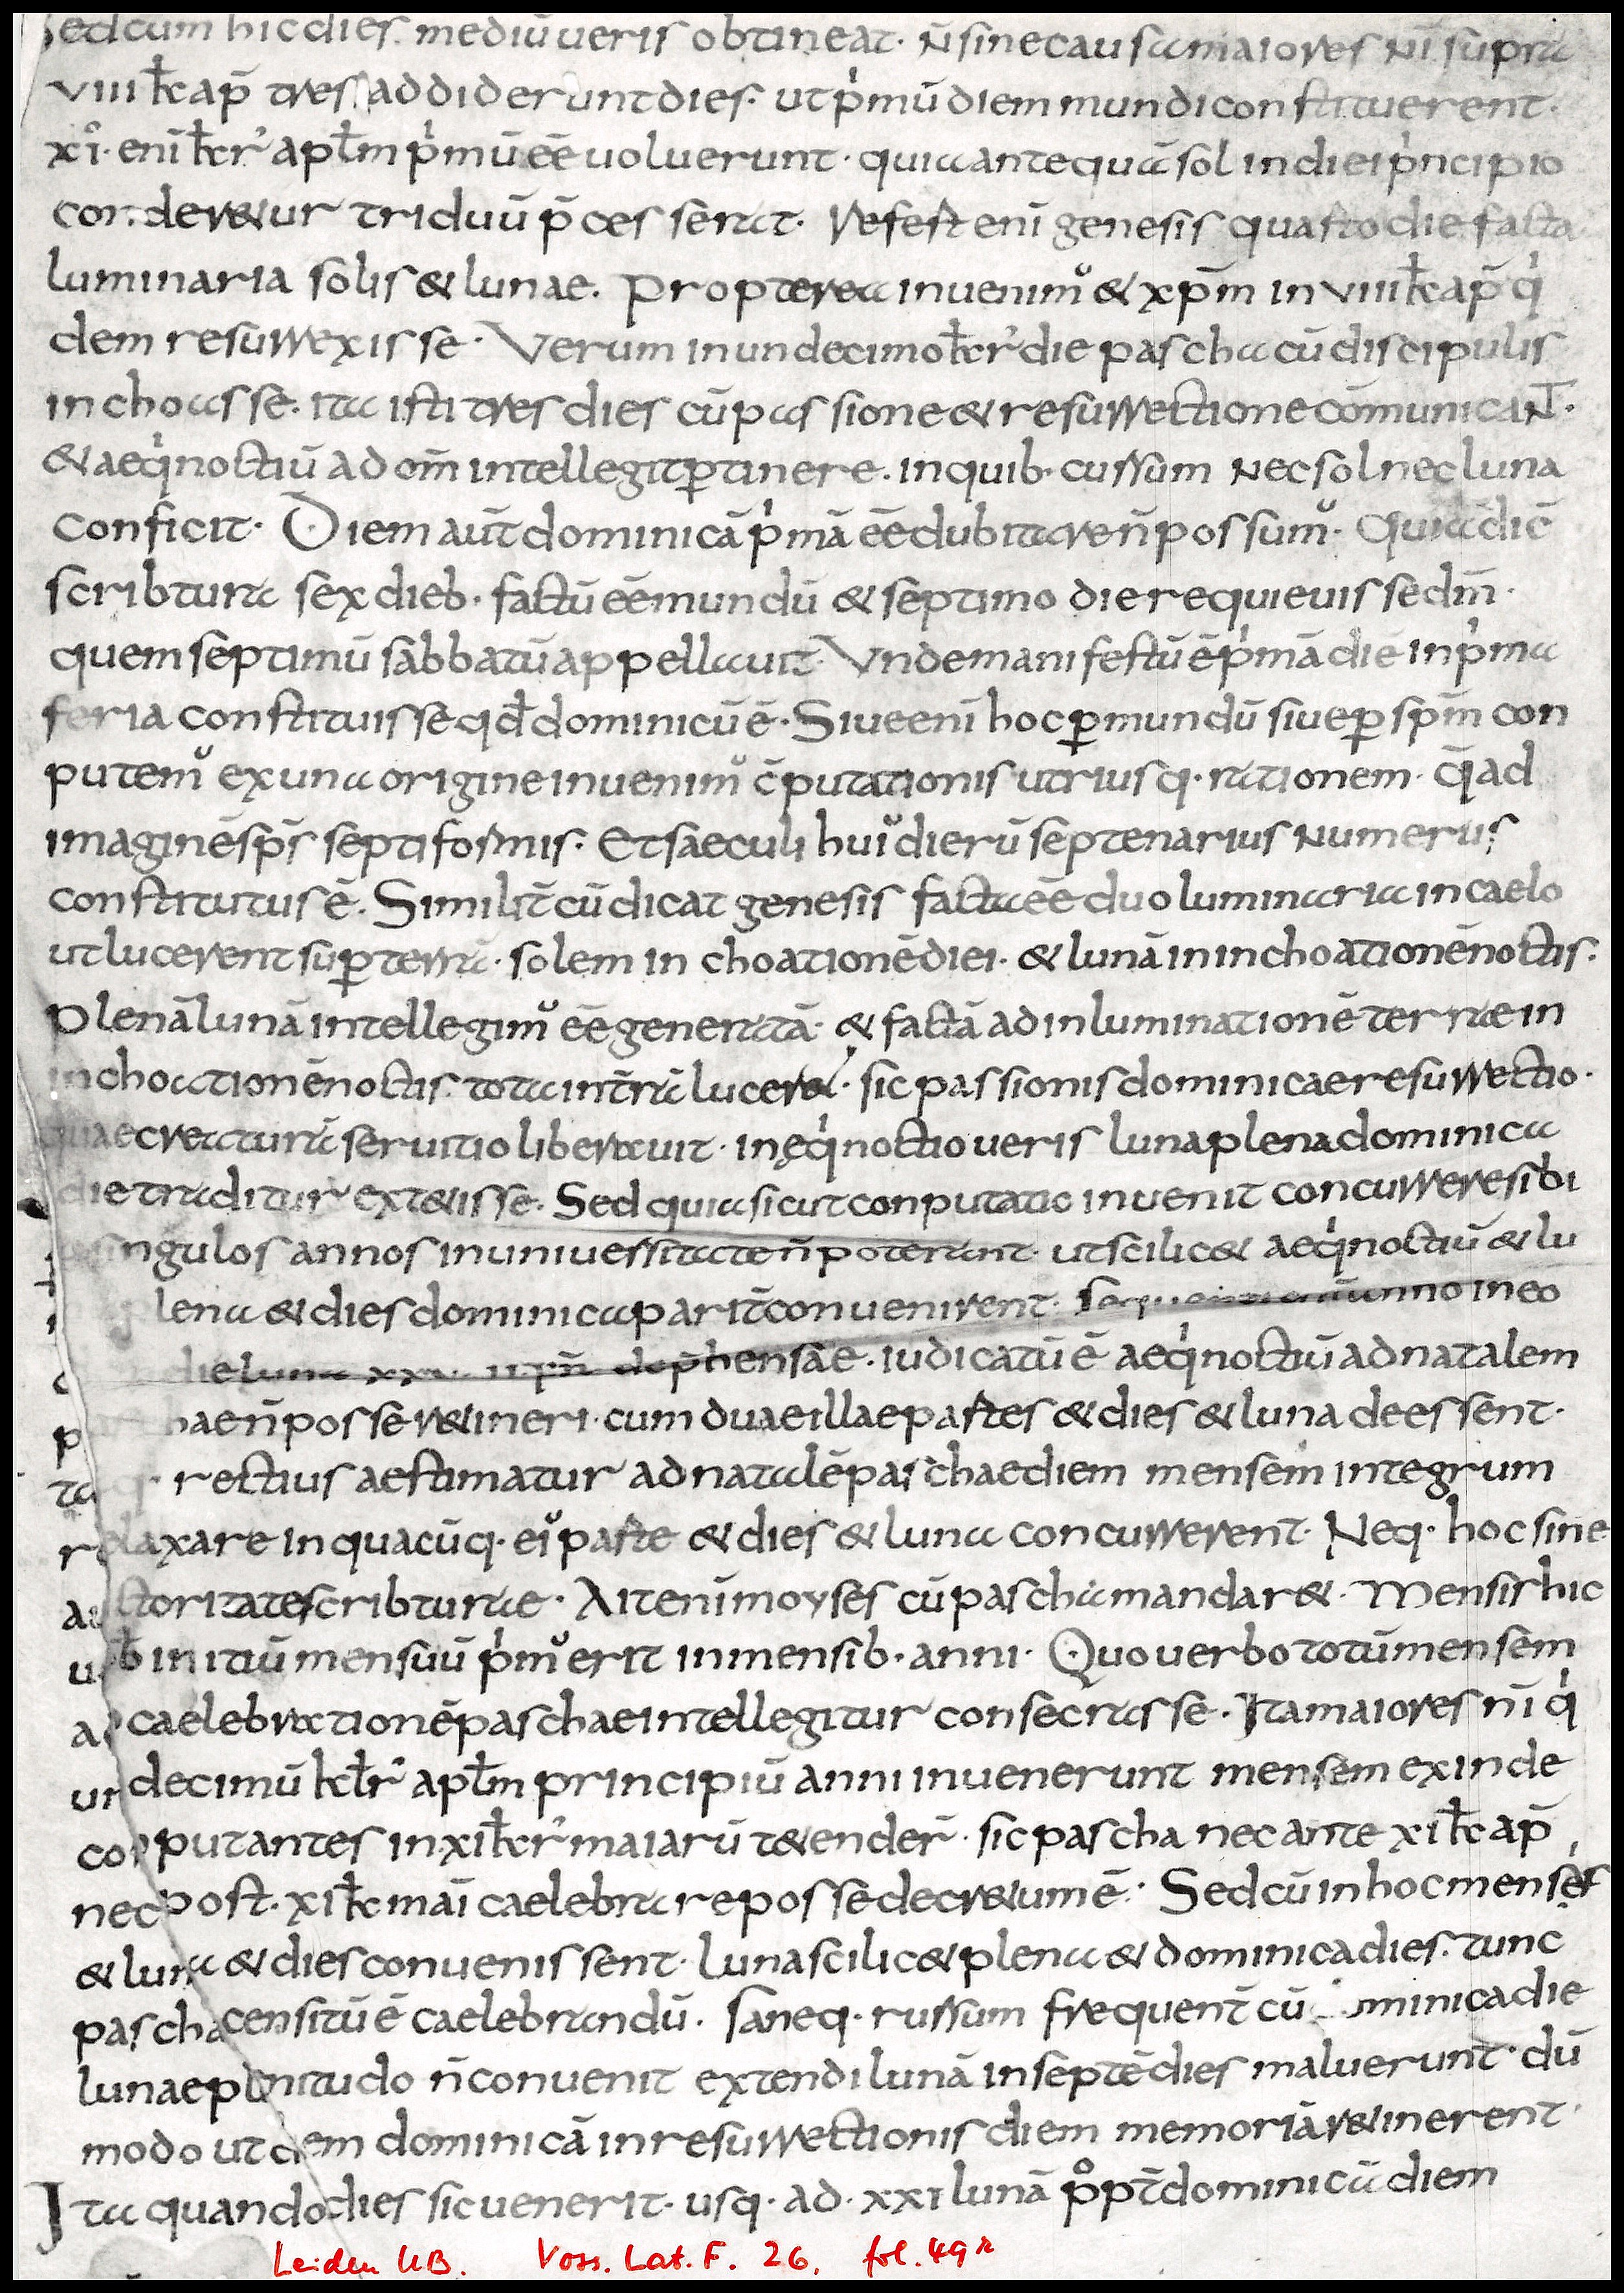 Sed cum hic dies mediū ueris obtineat · n̄ sine causa maiores nī supra
viii kł ap̄ tres addiderunt dies · ut p̍mū diem mundi constituerent ·
xi̊ · enī kłr apłm p̍mū eē uoluerunt · quia antequā sol in diei p̍ncipio
conderetur triduū p̄cesserat · Refert enī genesis quarto die facta
luminaria solis & lunae · Propterea inuenimꝰ & xp̄m in viii kł ap̄ q̍
dem resurrexisse · Verum in undecimo kłr die pascha cū discipulis
inchoasse · ita isti tres dies cū passione & resurrectione cōmunicaNT̄ ·
& aeq̍noctiū ad om̄ intellegit ꝑtinere · in quib · cursum nec sol nec luna
conficit · Diem aut̄ dominicā p̍mā eē dubitare n̄ possumꝰ · Quia dic̄
scribtura sex dieb · factū eē mundū & septimo die requieuisse dm̄ ·
quem septimū sabbatū appellauit · Vnde manifestū ē p̍mā diē in p̍ma
feria constituisse qd̄ dominicū ē · Siue enī hoc ꝑ mundū siue ꝑ sp̄m con
putemꝰ ex una origine inuenimꝰ c̄putationis utriusq · rationem · q̄ ad
imaginē sp̄s septiformis · Et saeculi huiꝰ dierū septenarius numerus
constitutus ē · Similit̄ cū dicat genesis facta eē duo luminaria in caelo
ut lucerent suꝑ terrā · solem in choationē diei · & lunā in inchoationē noctis ·
Plenā lunā intellegimꝰ eē generatā · & factā ad inluminationē terrae in
inchoationē noctis · tota in t̄rā luceret · sic passionis dominicae resurrectio ·
quae creaturā seruitio liberauit · in ęq̍noctio ueris luna plena dominica
die traditur extetisse · Sed quia sicut conputatio inuenit concurrere sibi
singulos annos in uniuersitate n̄ poterant · ut scilicet aeq̍noctiū & lu
plena & dies dominica parit̄ conuenirent · anno in eo
die luna dep̄hensae · iudicatū ē aeq̍noctiū ad natalem
p hae n̄ posse retineri · cum duae illae partes & dies & luna deessent ·
ta q · rectius aestimatur ad natalē paschae diem mensem integrum
relaxare in quacūq · eiꝰ parte & dies & luna concurrerent · Neq · hoc sine
auctoritate scribturae · Ait enī moyses cū pascha mandaret · Mensis hic
uob̄ initiū mensuū p̍mꝰ erit in mensib · anni · Quo uerbo totū mensem
ad caelebrationē paschae intellegitur consecrasse · Ita maiores nī q̍
undecimū kłr apłm principiū anni inuenerunt mensem exinde
conputantes in xi kłr maiarū tetender̄ · sic pascha nec ante xi kł ap̄
nec post · xi kł mai caelebrare posse decretum ē · Sed cū in hoc mense
& luna & dies conuenissent · luna scilicet plena & dominica dies · tunc
pascha censitū ē caelebrandū · saneq · rursum frequent̄ cū minica die
lunae plenitudo n̄ conuenit extendi lunā in septē dies maluerunt · dū
modo ut dem dominicā in resurrectionis diem memoriā retinerent ·
Ita quando dies sic uenerit · usq · ad · xxi lunā p̊pt̄ dominicū diem
Leiden UB. Voss. Lat. F. 26, fol. 49r